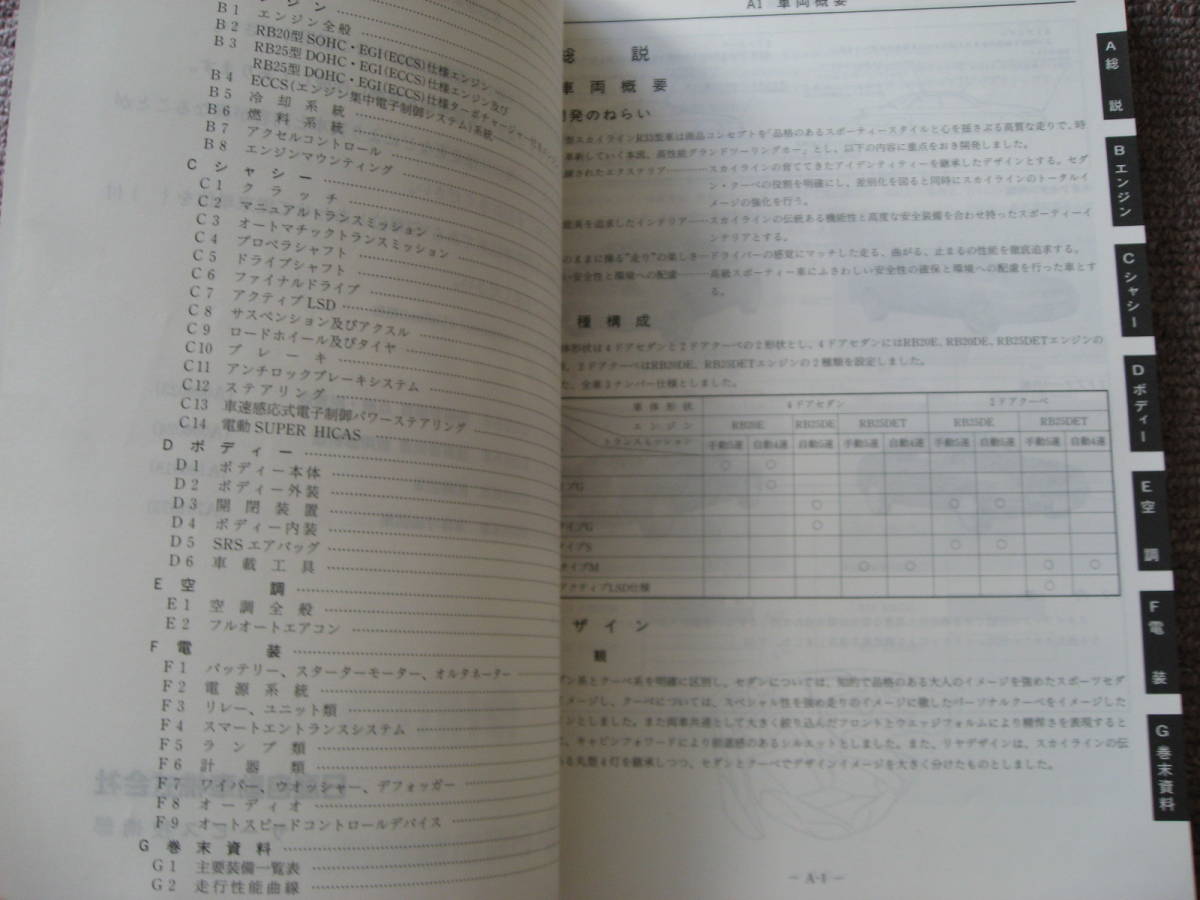 ンジン
B1 エンジン全般
B2 RB20型SOHC・EGI(ECCS)仕様エンジン
B3 RB25型DOHC・EGI(ECCS)仕様エンジン及び
RB25型DOHC・EGI(ECCS)仕様ターボチャージャー付
B4 ECCS(エンジン集中電子制御システム)系統
B5 冷却系統
B6 燃料系統
B7 アクセルコントロール
B8 エンジンマウンティング
C シャシー
C1 クラッチ
C2 マニュアルトランスミッション
C3 オートマチックトランスミッション
C4 プロペラシャフト
C5 ドライブシャフト
C6 ファイナルドライブ
C7 アクティブLSD
C8 サスペンション及びアクスル
C9 ロードホイール及びタイヤ
C10 ブレーキ
C11 アンチロックブレーキシステム
C12 ステアリング
C13 車速感応式電子制御パワーステアリング
C14 電動SUPER HICAS
D ボディー
D1 ボディー本体
D2 ボディー外装
D3 開閉装置
D4 ボディー内装
D5 SRSエアバッグ
D6 車載工具
E 空調
E1 空調全般
E2 フルオートエアコン
F 電装
F1 バッテリー、スターターモーター、オルタネーター
F2 電源系統
F3 リレー、ユニット類
F4 スマートエントランスシステム
F5 ランプ類
F6 計器類
F7 ワイパー、ウオッシャー、デフォッガー
F8 オーディオ
F9 オートスピードコントロールデバイス
G 巻末資料
G1 主要装備一覧表
G2 走行性能曲線
A1 車両概要
総説
車両概要
開発のねらい
型スカイラインR33型車は商品コンセプトを「品格のあるスポーティースタイルと心を揺さぶる高質な走りで、時
革新していく本流、高性能グランドツーリングカー」とし、以下の内容に重点をおき開発しました。
練されたエクステリア――スカイラインの育ててきたアイデンティティーを継承したデザインとする。セダ
ン・クーペの役割を明確にし、差別化を図ると同時にスカイラインのトータルイ
メージの強化を行う。
能美を追求したインテリア――スカイラインの伝統ある機能性と高度な安全装備を合わせ持ったスポーティーイ
ンテリアとする。
のままに操る"走り"の楽しさ――ドライバーの感覚にマッチした走る、曲がる、止まるの性能を徹底追求する。
い安全性と環境への配慮――高級スポーティー車にふさわしい安全性の確保と環境への配慮を行った車とす
る。
種構成
体形状は4ドアセダンと2ドアクーペの2形状とし、4ドアセダンにはRB20E、RB20DE、RB25DETエンジンの
、2ドアクーペはRB20DE、RB25DETエンジンの2種類を設定しました。
た、全車3ナンバー仕様としました。
車体形状 4ドアセダン 2ドアクーペ
エンジン RB20E RB25DE RB25DET RB25DE RB25DET
トランスミッション 手動5速 自動4速 自動5速 手動5速 自動4速 手動5速 自動5速 手動5速 自動4速
○ ○
プG ○
○ ○ ○
タイプG ○
タイプS ○ ○
タイプM ○ ○ ○ ○
アクティブLSD仕様 ○
ザイン
観
ダン系とクーペ系を明確に区別し、セダンについては、知的で品格のある大人のイメージを強めたスポーツセダ
イメージし、クーペについては、スペシャル性を強め走りのイメージに徹したパーソナルクーペをイメージした
インとしました。また両車共通として大きく絞り込んだフロントとウエッジフォルムにより精悍さを表現すると
、キャビンフォワードにより前進感のあるシルエットとしました。また、リヤデザインは、スカイラインの伝
ある丸型4灯を継承しつつ、セダンとクーペでデザインイメージを大きく分けたものとしました。
― A-1 ―
A 総説
B エンジン
C シャシー
D ボディー
E 空調
F 電装
G 巻末資料